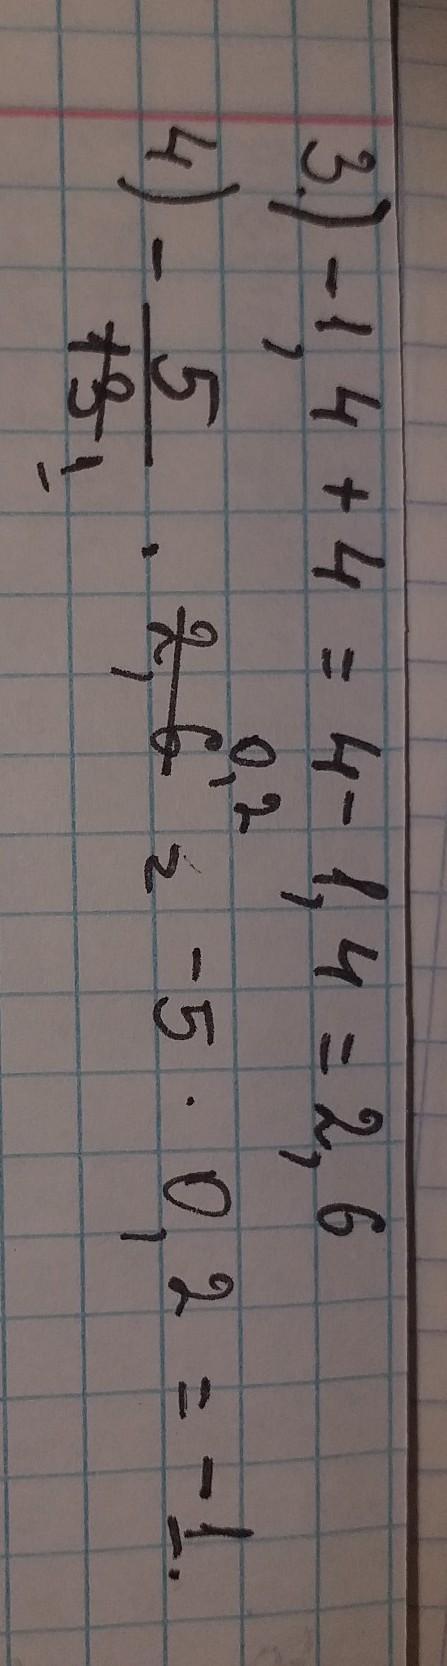 3.) -1,4 + 4 = 4 - 1,4 = 2,6
4) - 5/13 1 · 2,6 0,2 = -5 · 0,2 = -1.